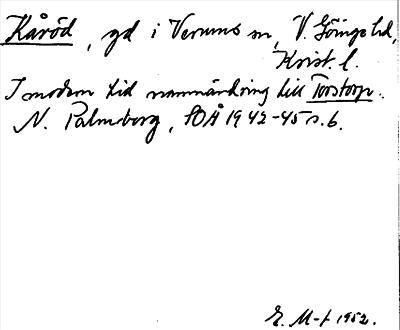 Kåröd, gd i Verums sn, V. Göinge hd,
Krist. l.
I modern tid namnändring till Torstorp.
N. Palmborg, SOÅ 1942-45 s. 6.
E. M-f 1952.